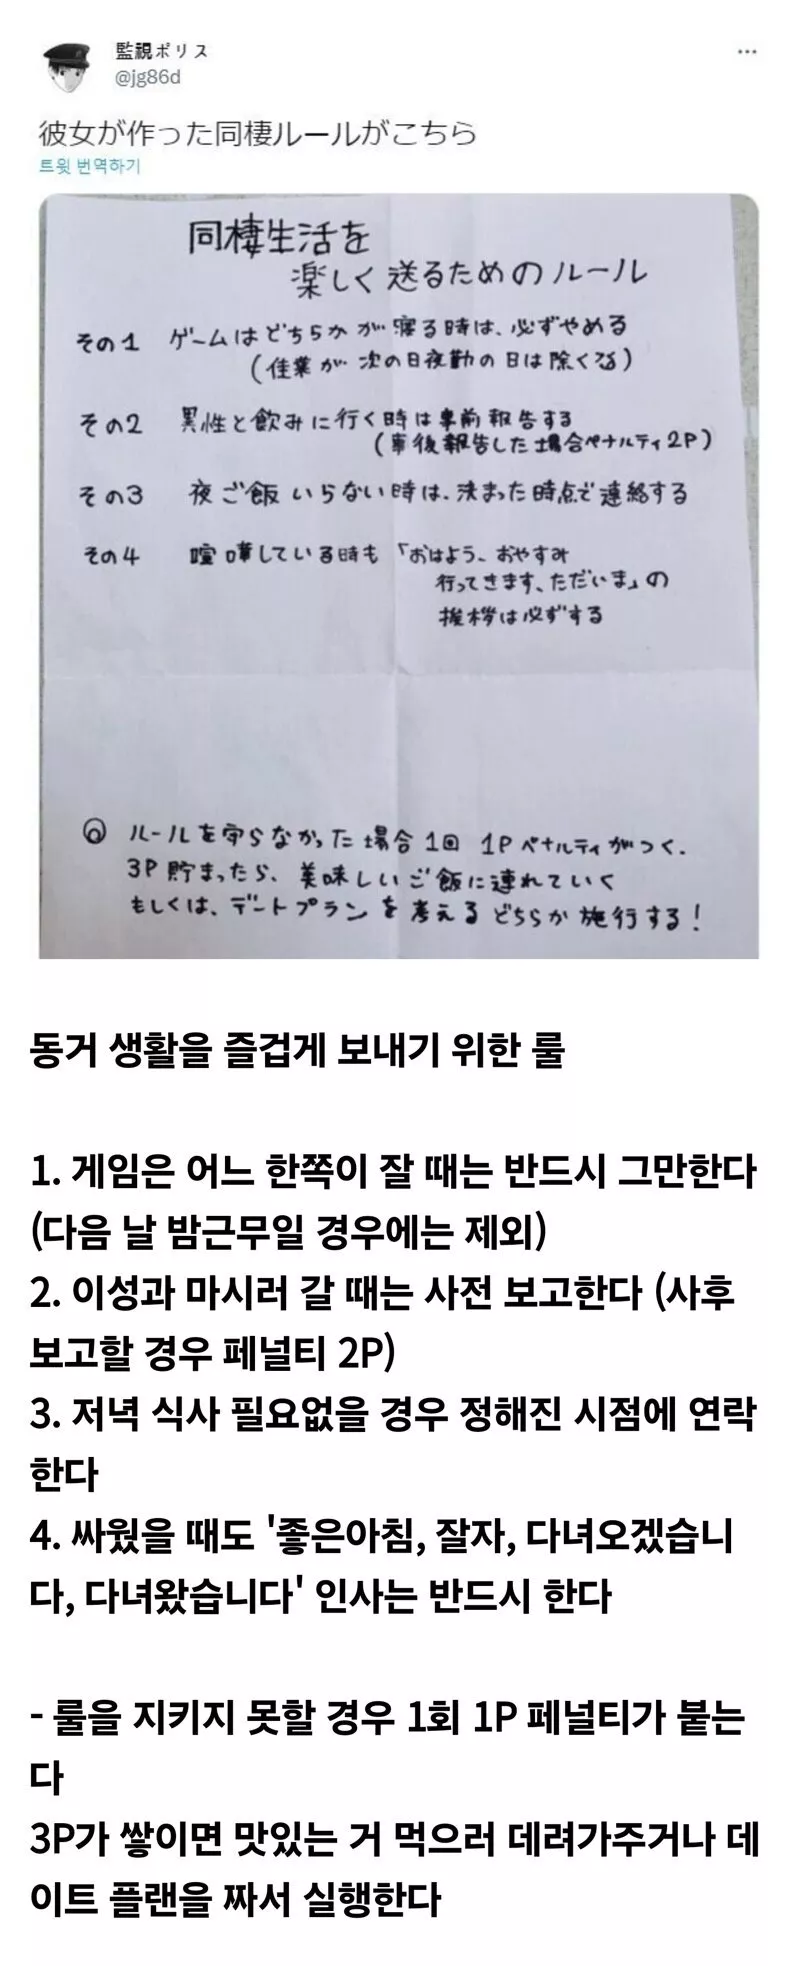 監視ポリス
@jg86d
彼女が作った同棲ルールがこちら
트윗 번역하기
同棲生活を
楽しく送るためのルール
その1 ゲームはどちらかが寝る時は、必ずやめる
(佳業が次の日夜勤の日は除くる)
その2 異性と飲みに行く時は事前報告する
(事後報告した場合ペナルティ2P)
その3 夜ご飯いらない時は、決まった時点で連絡する
その4 喧嘩している時も「おはよう、おやすみ
行ってきます、ただいま」の
挨拶は必ずする
◎ ルールを守らなかった場合1回 1Pペナルティがつく.
3P貯まったら、美味しいご飯に連れていく
もしくは、デートプランを考えるどちらか施行する!
동거 생활을 즐겁게 보내기 위한 룰
1. 게임은 어느 한쪽이 잘 때는 반드시 그만한다
(다음 날 밤근무일 경우에는 제외)
2. 이성과 마시러 갈 때는 사전 보고한다 (사후
보고할 경우 페널티 2P)
3. 저녁 식사 필요없을 경우 정해진 시점에 연락
한다
4. 싸웠을 때도 '좋은아침, 잘자, 다녀오겠습니
다, 다녀왔습니다' 인사는 반드시 한다
- 룰을 지키지 못할 경우 1회 1P 페널티가 붙는
다
3P가 쌓이면 맛있는 거 먹으러 데려가주거나 데
이트 플랜을 짜서 실행한다